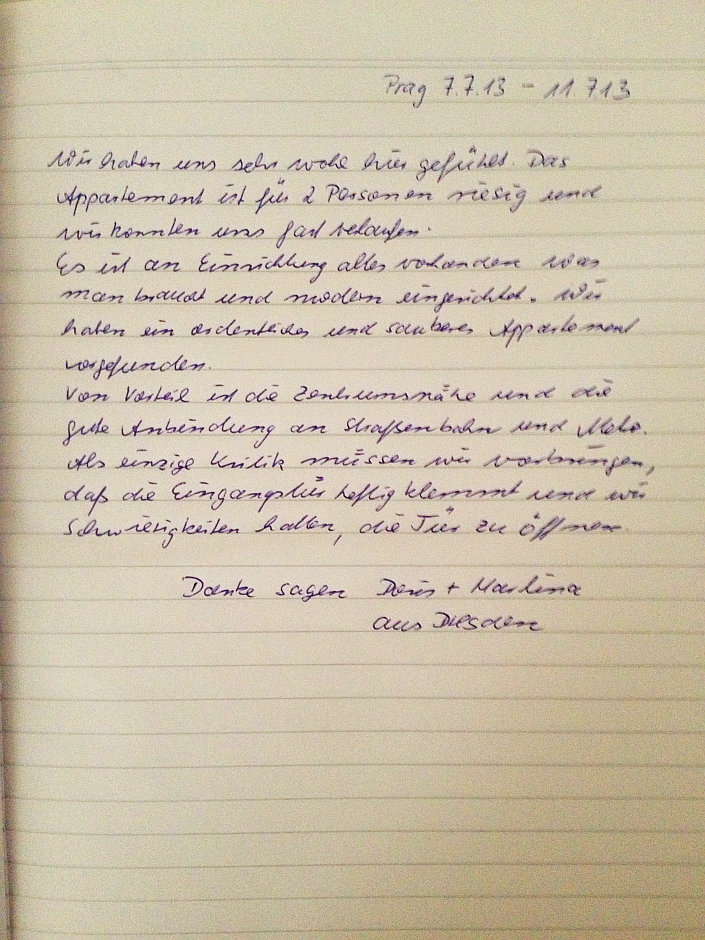 Prag 7.7.13 - 11.7.13
Wir haben uns sehr wohl hier gefühlt. Das
Appartement ist für 2 Personen riesig und
wir konnten uns fast verlaufen.
Es ist an Einrichtung alles vorhanden was
man braucht und modern eingerichtet. Wir
haben ein ordentliches und sauberes Appartement
vorgefunden.
Von Vorteil ist die Zentrumsnähe und die
gute Anbindung an Straßenbahn und Metro.
Als einzige Kritik müssen wir vorbringen,
daß die Eingangstür heftig klemmt und wir
Schwierigkeiten hatten, die Tür zu öffnen
Danke sagen Doris + Martina
aus Dresden